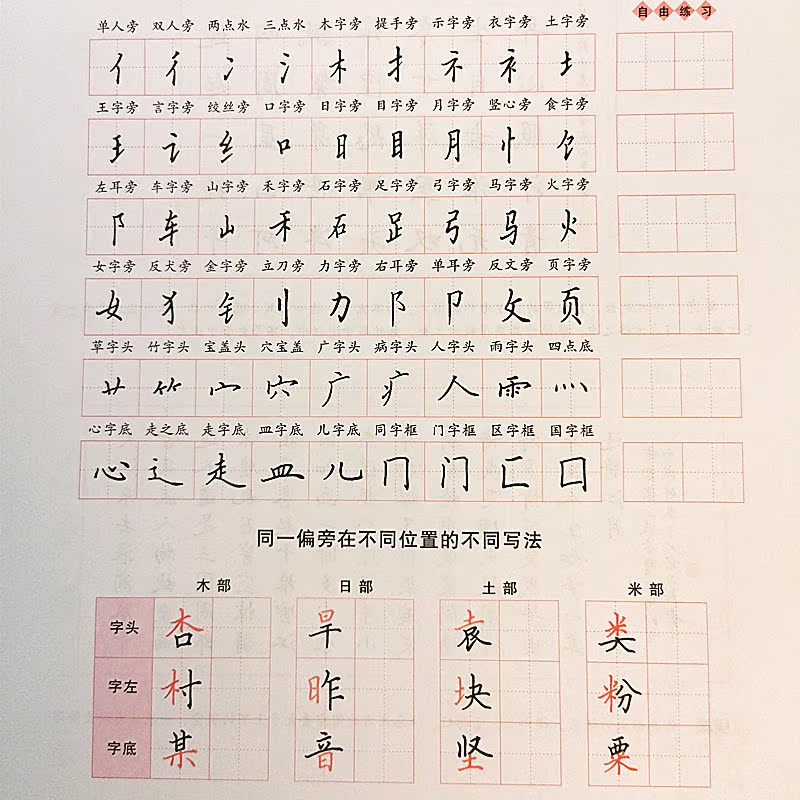 自由练习
单人旁 双人旁 两点水 三点水 木字旁 提手旁 示字旁 衣字旁 土字旁
亻 彳 冫 氵 木 扌 礻 衤 土
王字旁 言字旁 绞丝旁 口字旁 日字旁 目字旁 月字旁 竖心旁 食字旁
王 讠 纟 口 日 目 月 忄 饣
左耳旁 车字旁 山字旁 禾字旁 石字旁 足字旁 弓字旁 马字旁 火字旁
阝 车 山 禾 石 𧾷 弓 马 火
女字旁 反犬旁 金字旁 立刀旁 力字旁 右耳旁 单耳旁 反文旁 页字旁
女 犭 钅 刂 力 阝 卩 攵 页
草字头 竹字头 宝盖头 穴宝盖 广字头 病字头 人字头 雨字头 四点底
艹 竹 宀 穴 广 疒 人 雨 灬
心字底 走之底 走字底 皿字底 儿字底 同字框 门字框 区字框 国字框
心 辶 走 皿 儿 冂 门 匚 囗
同一偏旁在不同位置的不同写法
木部 日部 土部 米部
字头 杏 旱 袁 类
字左 村 昨 块 粉
字底 某 音 坚 粟